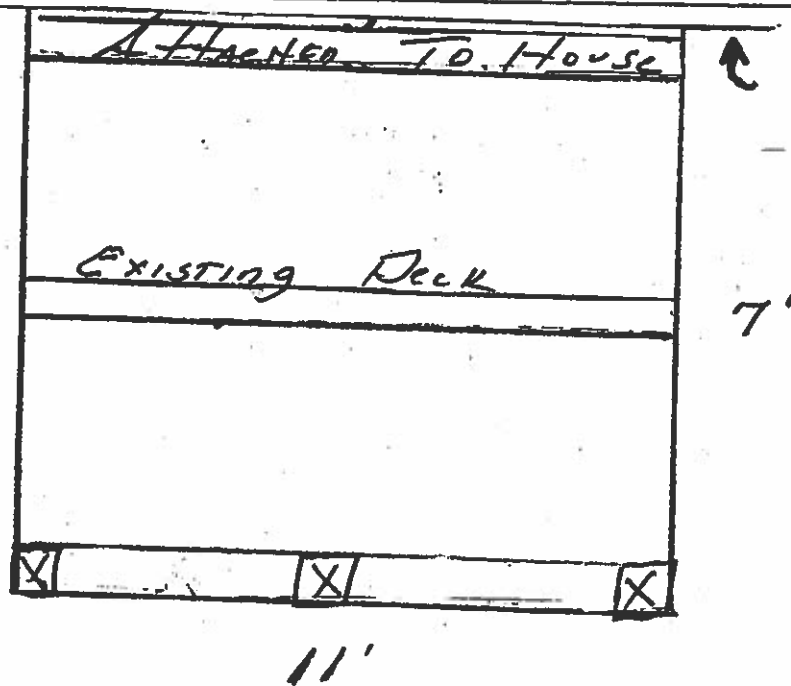 ATTACHED TO. HOUSE
Existing Deck
7'
X X X
11'